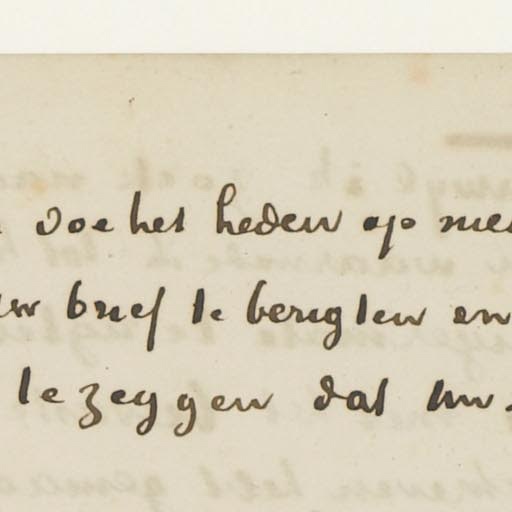 doe het heden op nie
uw brief te berigten en
te zeggen dat uw